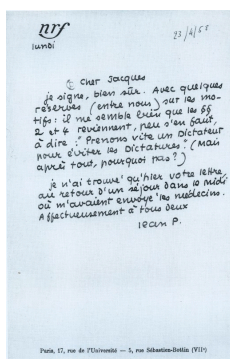 nrf
lundi
23/4/55
Cher Jacques
je signe, bien sûr. Avec quelques
réserves (entre nous) sur les mo-
tifs: il me semble bien que les §§
2 et 4 reviennent, peu s'en faut,
à dire: "Prenons vite un Dictateur
pour éviter les Dictatures". (Mais
après tout, pourquoi pas?)
je n'ai trouvé qu'hier votre lettre,
au retour d'un séjour dans le Midi
où m'avaient envoyé les médecins.
Affectueusement à tous deux
Jean P.
Paris, 17, rue de l'Université — 5, rue Sébastien-Bottin (VIIe)